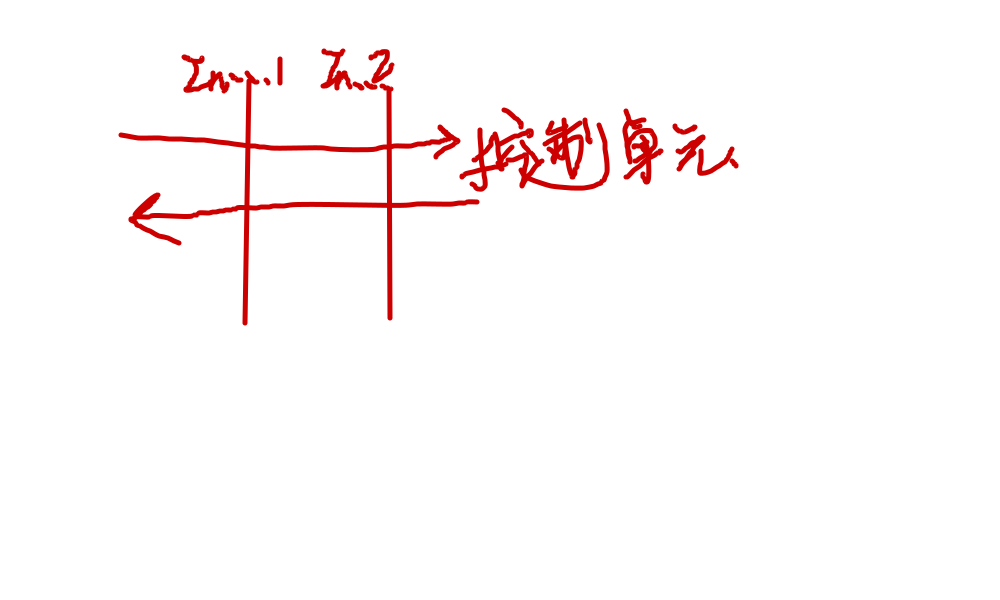 In.1 In.2
控制单元